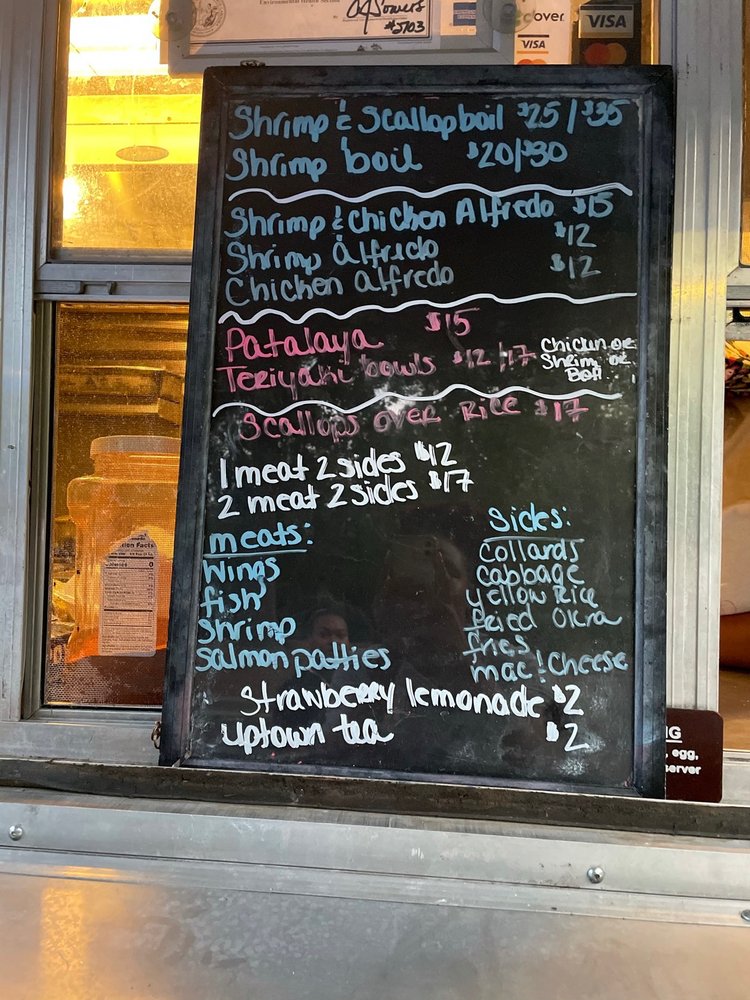 Environmental Health Section
#5703
cover
VISA
VISA
Shrimp & Scallop boil $25/$35
Shrimp boil $20/$30
Shrimp & Chicken Alfredo $15
Shrimp alfredo $12
Chicken alfredo $12
Patalaya $15
Teriyaki bowls $12/17 Chicken or Shrim or Both
Scallops over Rice $17
1 meat 2 sides $12
2 meat 2 sides $17
meats:
Wings
fish
shrimp
salmon patties
Sides:
Collards
Cabbage
yellow Rice
fried Okra
fries
mac & Cheese
Strawberry lemonade $2
uptown tea $2
Nutrition Facts
G
, egg,
server